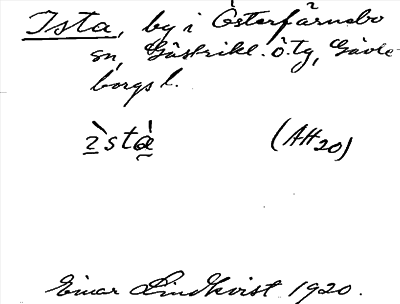 Ista, by i Österfärnebo
sn, Gästrikl. ö. tg, Gävle-
borgs l.
ìstà (AH 20)
Einar Lindkvist 1920.